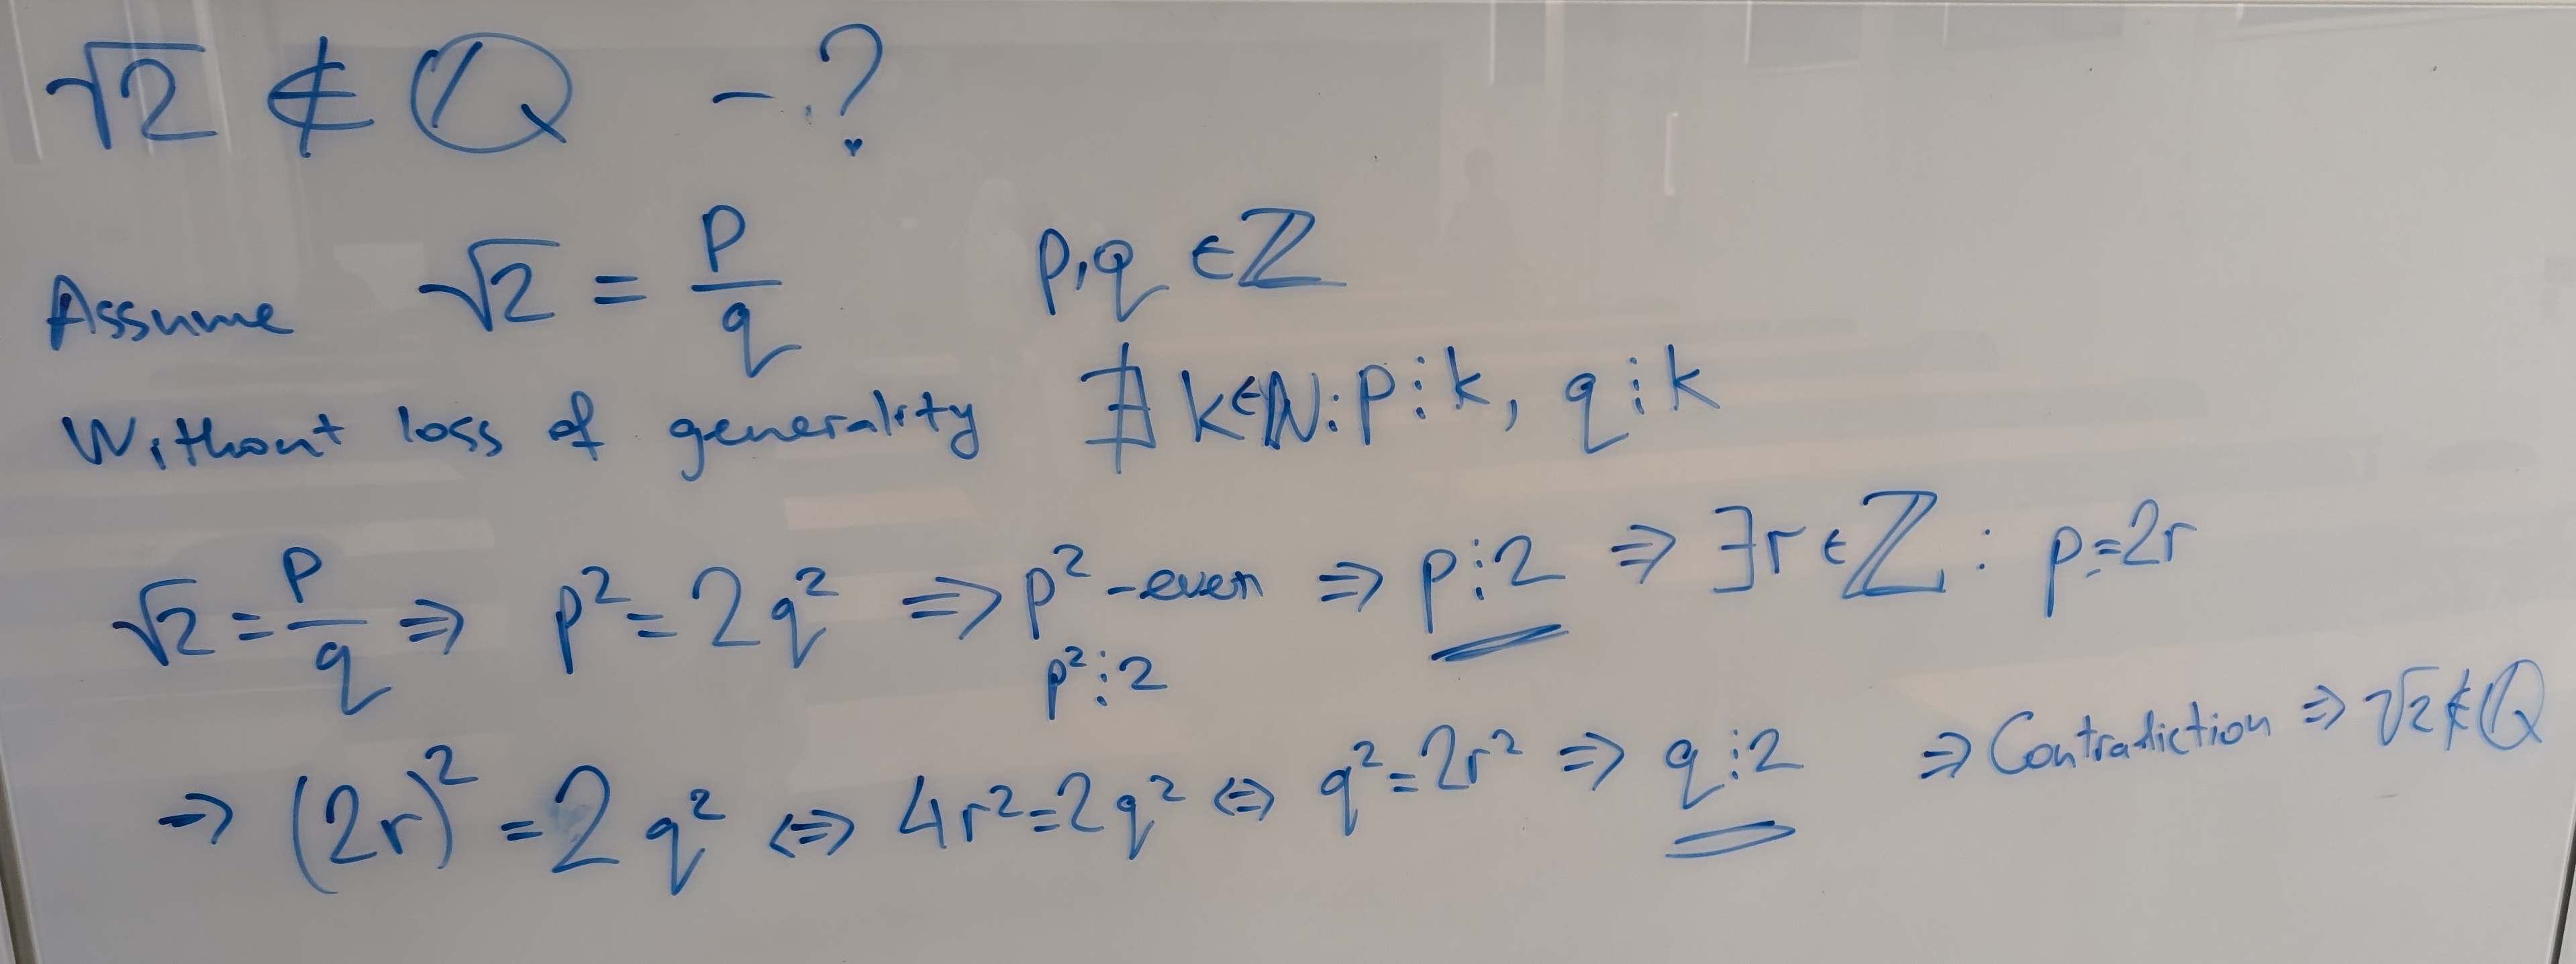 √2 ∉ ℚ - ?
Assume √2 = p/q p,q ∈ ℤ
Without loss of generality ∄ k∈ℕ: p⋮k, q⋮k
√2 = p/q ⇒ p² = 2q² ⇒ p² - even ⇒ p⋮2 ⇒ ∃r∈ℤ : p=2r
p²⋮2
⇒ (2r)² = 2q² ⇔ 4r²=2q² ⇔ q²=2r² ⇒ q⋮2 ⇒ Contradiction ⇒ √2∉ℚ